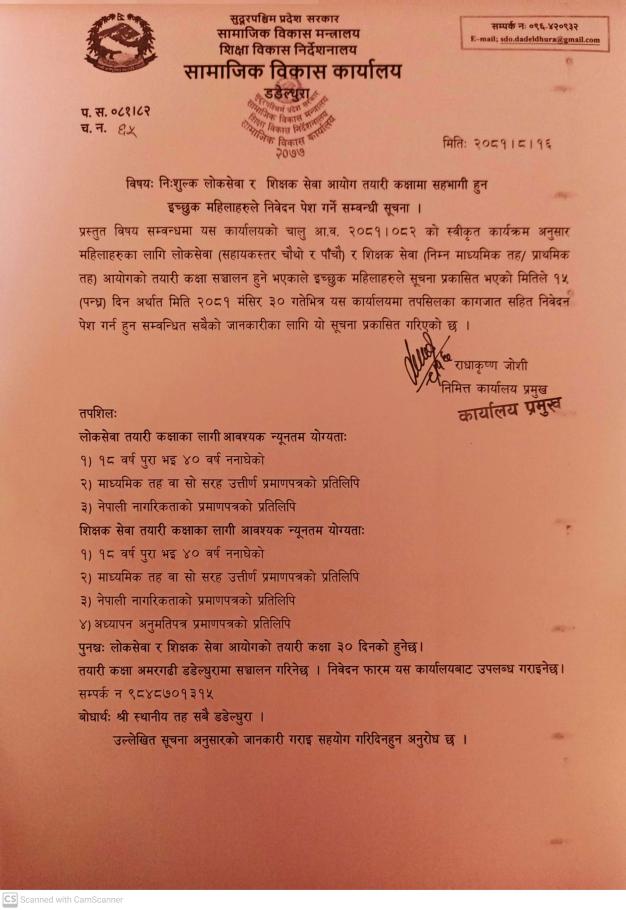 सुदूरपश्चिम प्रदेश सरकार
सामाजिक विकास मन्त्रालय
शिक्षा विकास निर्देशनालय
सामाजिक विकास कार्यालय
डडेल्धुरा
सम्पर्क नं: ०९६-४२०९३२
E-mail; sdo.dadeldhura@gmail.com
सुदूरपश्चिम प्रदेश सरकार
सामाजिक विकास मन्त्रालय
शिक्षा विकास निर्देशनालय
सामाजिक विकास कार्यालय
२०७७
प. स. ०८१।८२
च. न. ६५
मितिः २०८१।८।१६
विषयः निःशुल्क लोकसेवा र शिक्षक सेवा आयोग तयारी कक्षामा सहभागी हुन
इच्छुक महिलाहरुले निवेदन पेश गर्ने सम्बन्धी सूचना ।
प्रस्तुत विषय सम्बन्धमा यस कार्यालयको चालु आ.व. २०८१।०८२ को स्वीकृत कार्यक्रम अनुसार
महिलाहरुका लागि लोकसेवा (सहायकस्तर चौथो र पाँचौ) र शिक्षक सेवा (निम्न माध्यमिक तह/ प्राथमिक
तह) आयोगको तयारी कक्षा सञ्चालन हुने भएकाले इच्छुक महिलाहरुले सूचना प्रकासित भएको मितिले १५
(पन्ध्र) दिन अर्थात मिति २०८१ मंसिर ३० गतेभित्र यस कार्यालयमा तपसिलका कागजात सहित निवेदन
पेश गर्न हुन सम्बन्धित सबैको जानकारीका लागि यो सूचना प्रकासित गरिएको छ ।
राधाकृष्ण जोशी
निमित्त कार्यालय प्रमुख
कार्यालय प्रमुख
तपशिलः
लोकसेवा तयारी कक्षाका लागी आवश्यक न्यूनतम योग्यताः
१) १८ वर्ष पुरा भइ ४० वर्ष ननाघेको
२) माध्यमिक तह वा सो सरह उत्तीर्ण प्रमाणपत्रको प्रतिलिपि
३) नेपाली नागरिकताको प्रमाणपत्रको प्रतिलिपि
शिक्षक सेवा तयारी कक्षाका लागी आवश्यक न्यूनतम योग्यताः
१) १८ वर्ष पुरा भइ ४० वर्ष ननाघेको
२) माध्यमिक तह वा सो सरह उत्तीर्ण प्रमाणपत्रको प्रतिलिपि
३) नेपाली नागरिकताको प्रमाणपत्रको प्रतिलिपि
४) अध्यापन अनुमतिपत्र प्रमाणपत्रको प्रतिलिपि
पुनश्चः लोकसेवा र शिक्षक सेवा आयोगको तयारी कक्षा ३० दिनको हुनेछ।
तयारी कक्षा अमरगढी डडेल्धुरामा सञ्चालन गरिनेछ । निवेदन फारम यस कार्यालयबाट उपलब्ध गराइनेछ।
सम्पर्क न ९८४८७०१३१५
बोधार्थः श्री स्थानीय तह सबै डडेल्धुरा ।
उल्लेखित सूचना अनुसारको जानकारी गराइ सहयोग गरिदिनहुन अनुरोध छ ।
CS Scanned with CamScanner